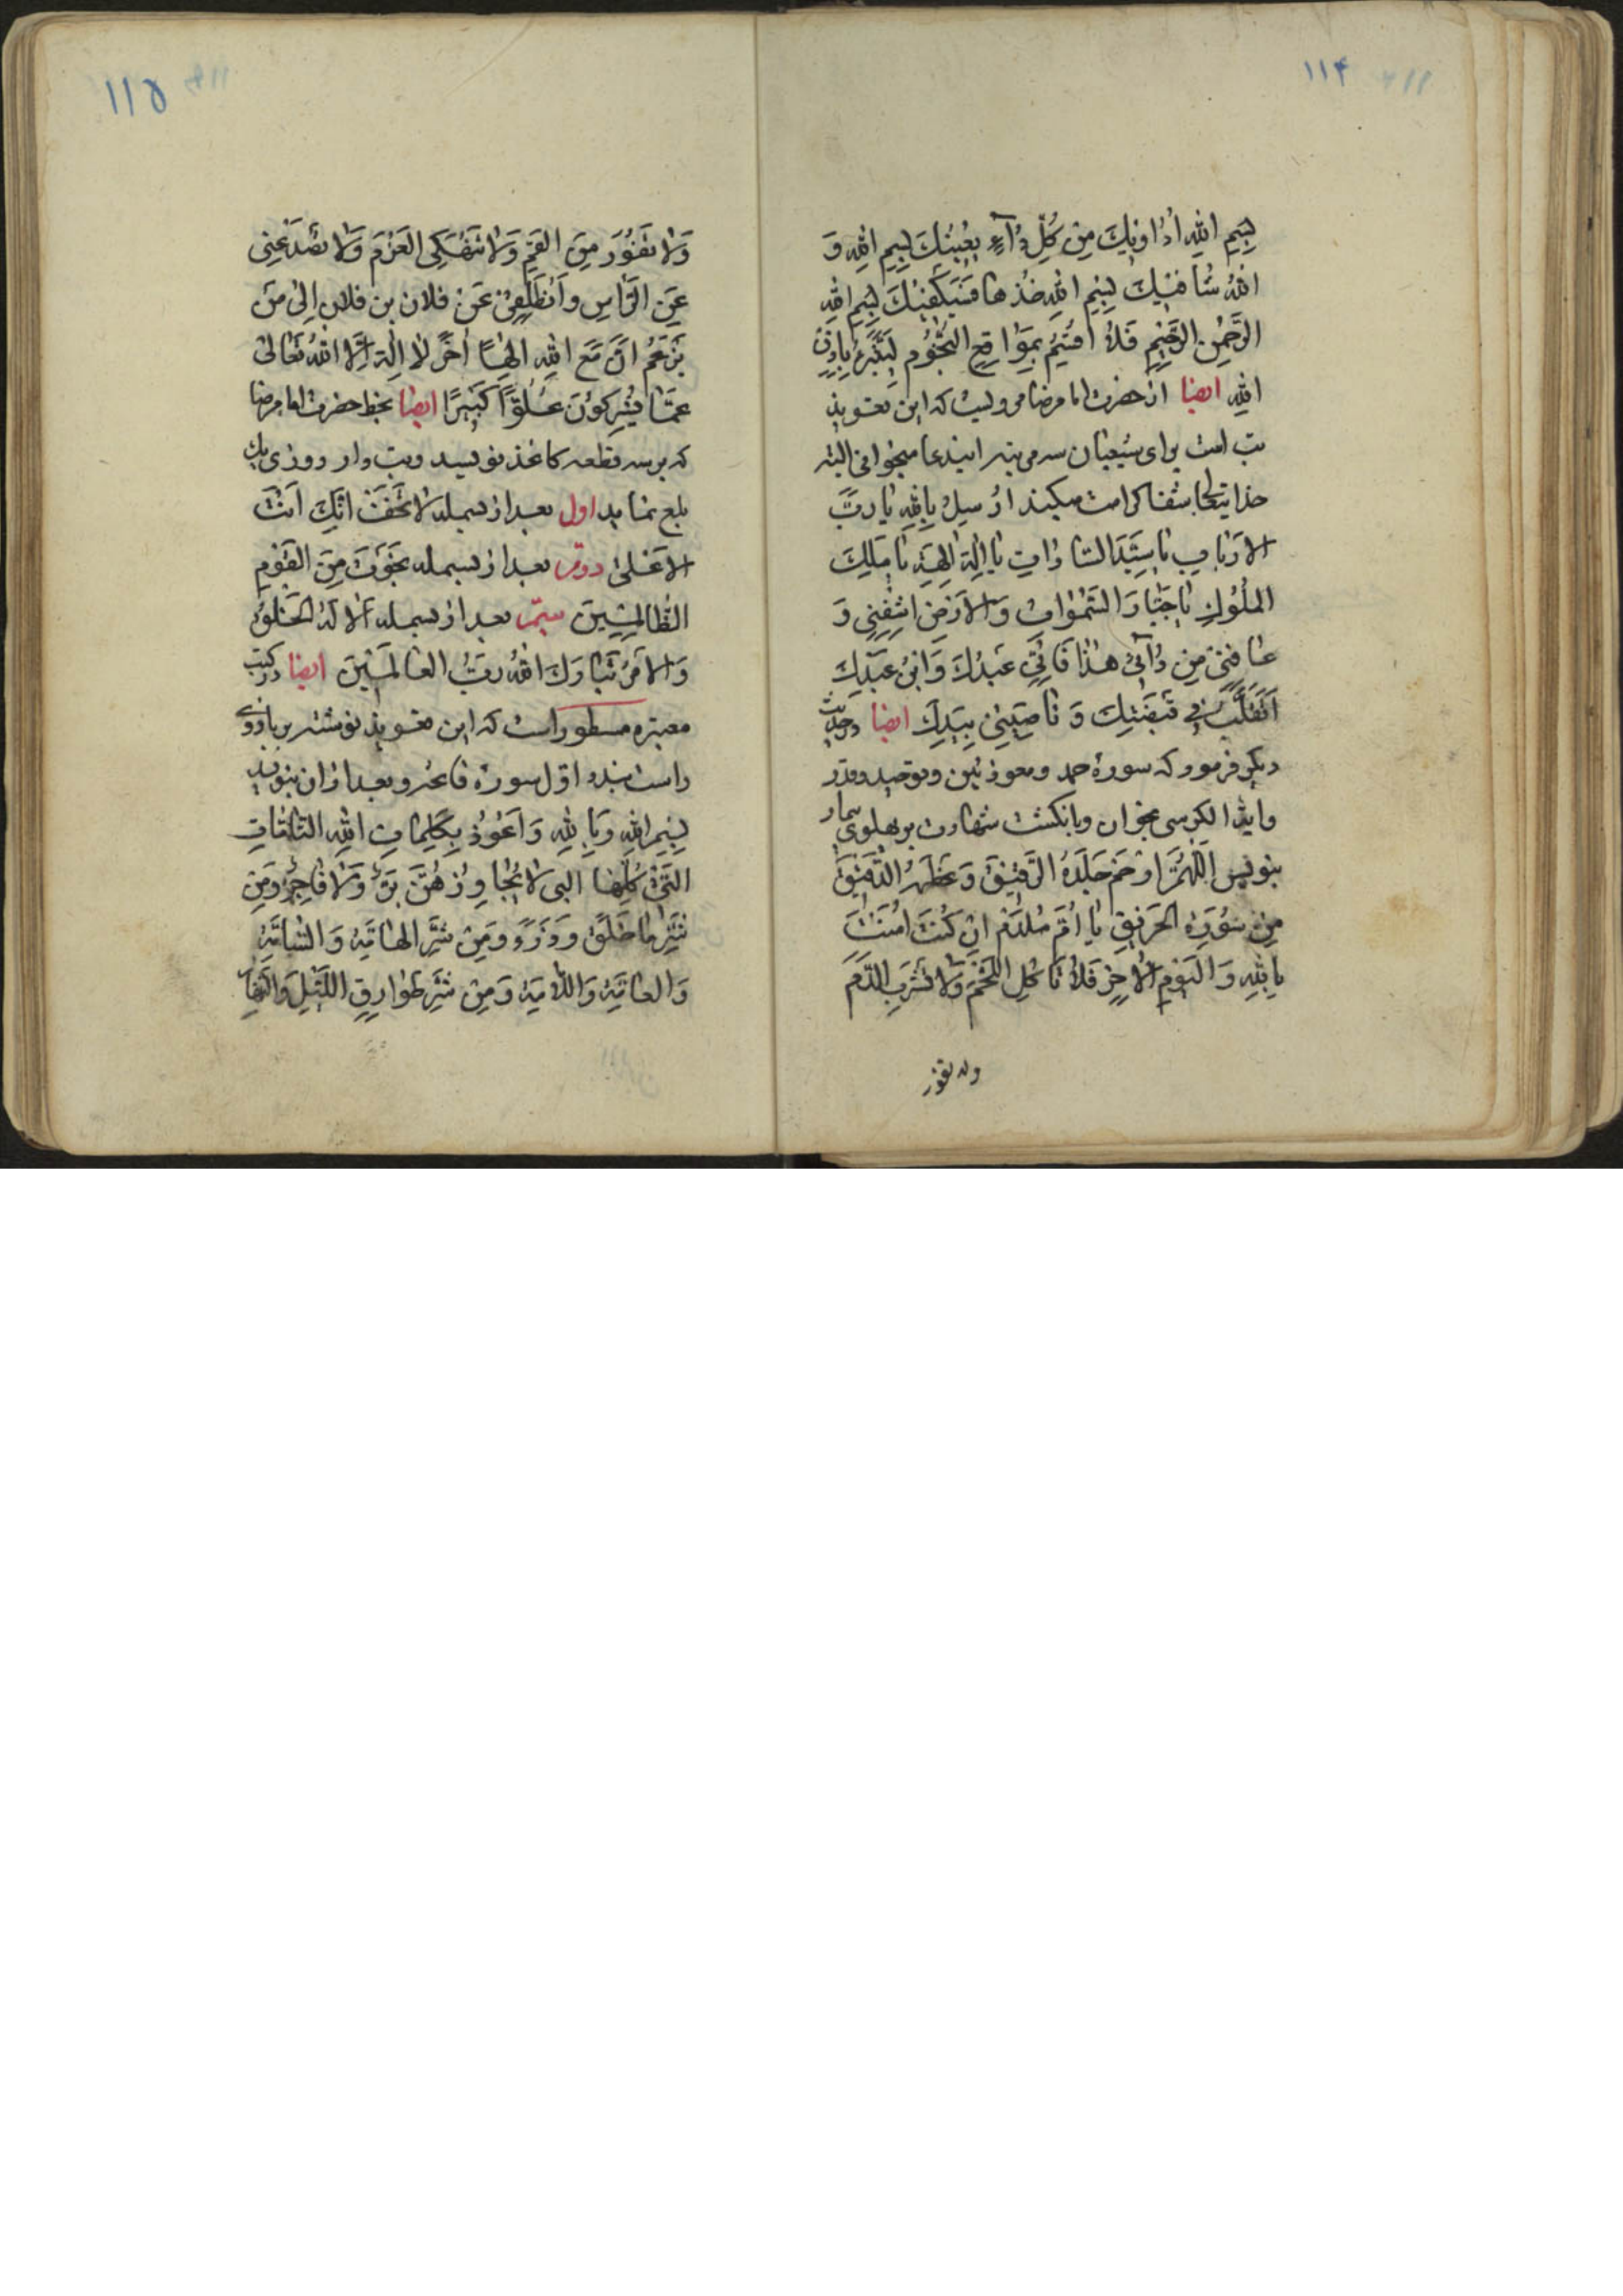 ۱۱۴
بِسْمِ اللهِ اُدٰاوِيْكَ مِنْ كُلِّ دٰآءٍ يُعْيِيْكَ بِسْمِ اللهِ وَ
اللهُ شٰافِيْكَ بِسْمِ اللهِ خُذْهٰا فَسَيَكْفِيْكَ بِسْمِ اللهِ
الرَّحْمٰنِ الرَّحِيْمِ فَلاٰ اُقْسِمُ بِمَوٰاقِعِ النُّجُوْمِ لَتَبْرَءُ بِاِذْنِ
اللهِ ايضا از حضرت امام رضا مرويست كه اين تعويذ
تب است براى شيعيان
خدايتعالى شفا كرامت ميكند يٰا اَللهُ يٰا رَبَّ
الاَرْبٰابِ يٰا سَيِّدَ السّٰادٰاتِ يٰا اِلٰهَ الاٰلِهَةِ يٰا مَلِكَ
المُلُوْكِ يٰا جَبّٰارَ السَّمٰوٰاتِ وَالاَرْضِ اشْفِنِى وَ
عٰافِنِىْ مِنْ دٰآئِىْ هٰذٰا فَاِنِّى عَبْدُكَ وَابْنُ عَبْدِكَ
اَتَقَلَّبُ فِى قَبْضَتِكَ وَ نٰاصِيَتِى بِيَدِكَ ايضا در حديث
ديكر فرمود كه سورۀ حمد و معوذتين و توحيد و قدر
واية الكرسى بخوان و بانكشت شهادت بر پهلوى بيمار
بنويس اَللّٰهُمَّ ارْحَمْ جِلْدَهُ الرَّقِيْقَ وَعَظْمَهُ الدَّقِيْقَ
مِنْ سَوْرَةِ الحَرِيْقِ يٰا اُمَّ مِلْدَمْ اِنْ كُنْتَ اٰمَنْتَ
بِاللهِ وَ الْيَوْمِ الاٰخِرِ فَلاٰ تَأكُلِ اللَّحْمَ وَلاٰ تَشْرَبِ الدَّمَ
ولا تفور
۱۱۵
وَلاٰ تَفُوْرَ مِنَ الفَمِّ وَلاٰ تَنْهَكِى العَزْمَ وَلاٰ تَصْدَعِى
عَنِ الرَّاْسِ وَانْطَلِقِىْ عَنْ فلان بن فلان اِلىٰ مَنْ
يَزْعَمُ اَنَّ مَعَ اللهِ اِلٰهًا اٰخَرَ لاٰ اِلٰهَ اِلَّا اللهُ تَعٰالىٰ
عَمّٰا يُشْرِكُوْنَ عُلُوًّا كَبِيْرًا ايضا بخط حضرت امام رضا
كه بر سه قطعه كاغذ نويسد و تب دار روزى يك
بلع نمايد اول بعد از بسمله لاٰ تَخَفْ اِنَّكَ اَنْتَ
الاَعْلىٰ دوم بعد از بسمله نَجَوْتَ مِنَ القَوْمِ
الظّٰالِمِيْنَ سيّم بعد از بسمله اَلاٰ لَهُ الْخَلْقُ
وَالاَمْرُ تَبٰارَكَ اللهُ رَبُّ العٰالَمِيْنَ ايضا در كتب
معتبره مسطور است كه اين تعويذ نوشته بر بازوى
راست بندد اول سورۀ فاتحه و بعد از ان بنويسد
بِسْمِ اللهِ وَبِاللهِ وَاَعُوْذُ بِكَلِمٰاتِ اللهِ التّٰامّٰاتِ
الَّتِىْ كُلِّهٰا التى لاٰ يُجٰاوِزُهُنَّ بَرٌّ وَلاٰ فٰاجِرٌ وَمِنْ
شَرِّ مٰا خَلَقَ وَذَرَءَ وَمِنْ شَرِّ الهٰامَّةِ وَالسّٰامَّةِ
وَالعٰامَّةِ وَاللّٰامَّةِ وَمِنْ شَرِّ طَوٰارِقِ اللَّيْلِ وَالنَّهٰارِ